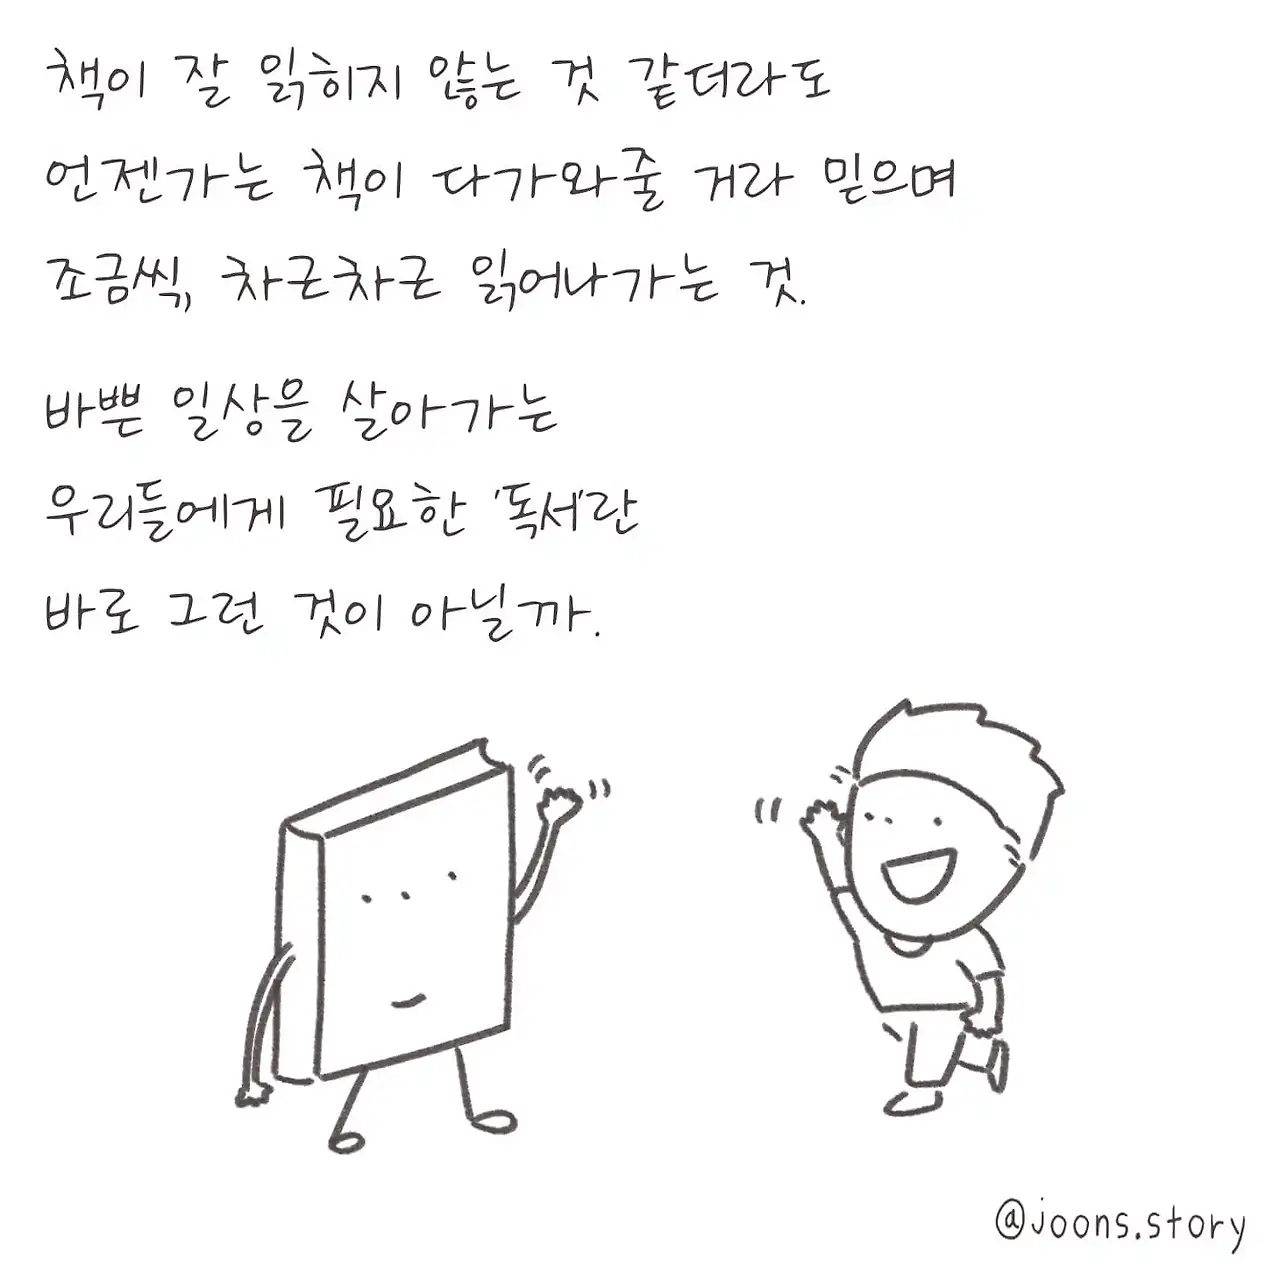 책이 잘 읽히지 않는 것 같더라도
언젠가는 책이 다가와줄 거라 믿으며
조금씩, 차근차근 읽어나가는 것.
바쁜 일상을 살아가는
우리들에게 필요한 '독서'란
바로 그런 것이 아닐까.
@joons.story